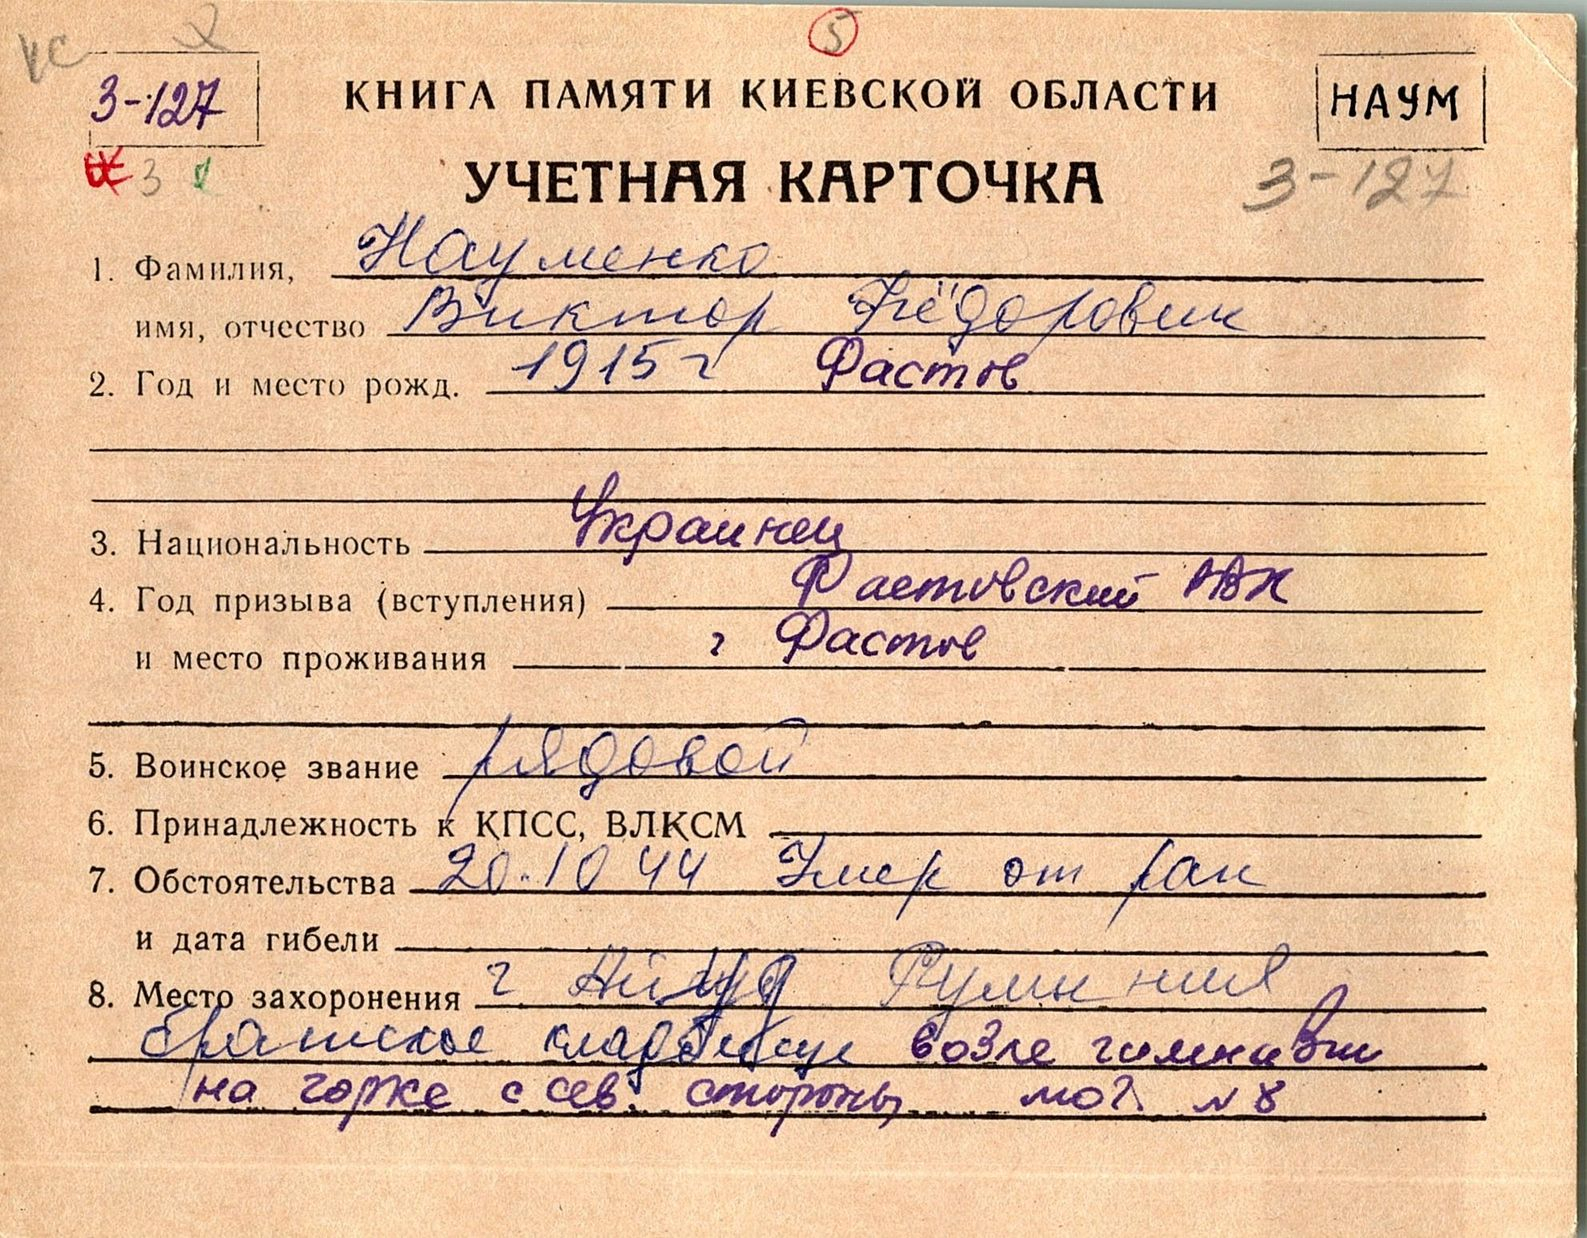 5
3-127
КНИГА ПАМЯТИ КИЕВСКОЙ ОБЛАСТИ
НАУМ
3
УЧЕТНАЯ КАРТОЧКА
3-127
1. Фамилия, Науменко
имя, отчество Виктор Фёдорович
2. Год и место рожд. 1915 г Фастов
3. Национальность Украинец
4. Год призыва (вступления) Фастовский РВК
и место проживания г Фастов
5. Воинское звание рядовой
6. Принадлежность к КПСС, ВЛКСМ
7. Обстоятельства 20.10 44 Умер от ран
и дата гибели
8. Место захоронения г Айуд Румыния
братское кладбище возле гимназии
на горке с сев. стороны мог. № 8